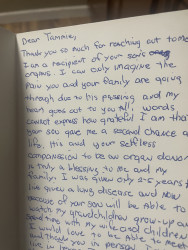 Dear Tammie,
Thank you so much for reaching out to me.
I am a recipient of your son's
organs. I can only imagine the
pain you and your family are going
through due to his passing and my
heart goes out to you all, words
cannot express how grateful I am that
your son gave me a second chance at
life. His and your selfless
compassion to be an organ donor
is truly a blessing to me and my
family. I was given only 2-5 years to
live given a lung disease, and now
because of your son will be able to
watch my grandchildren grow up and
time with my wife and children
I would love to be able to meet
and thank you in person. I